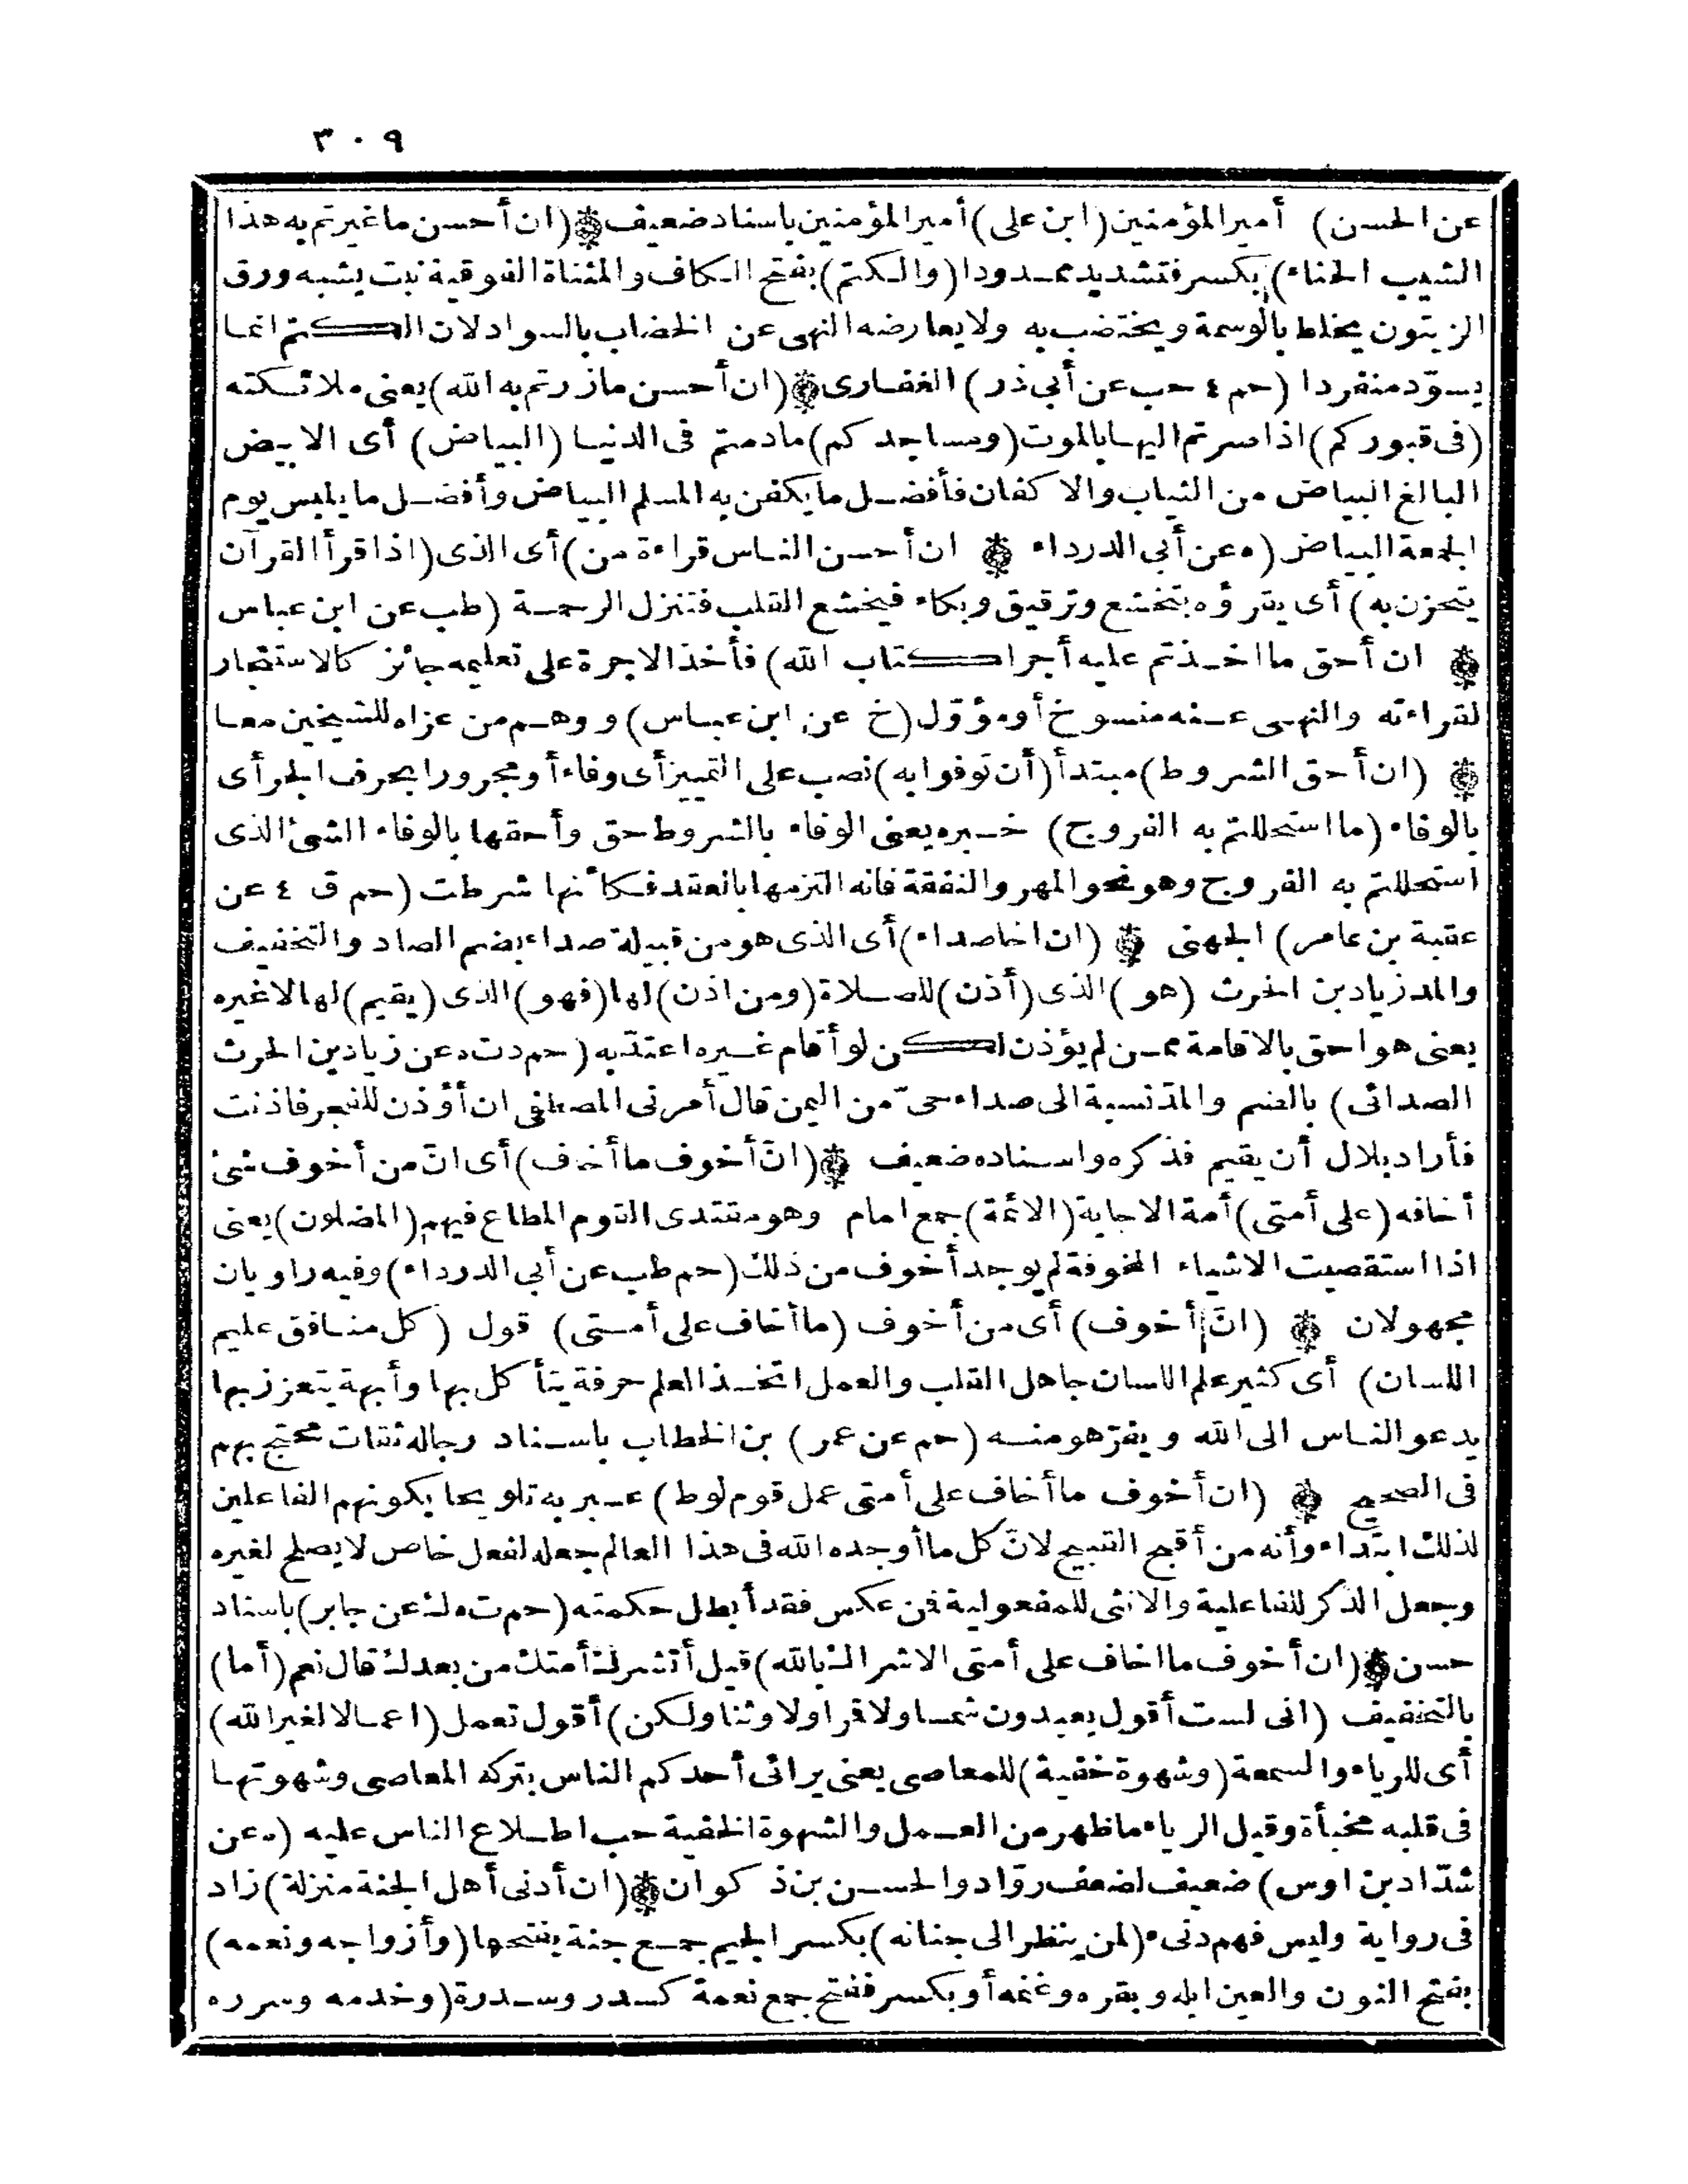 ٣٠٩
عن الحسن) أمير المؤمنين (ابن على) أمير المؤمنين باسناد ضعيف (ان أحسن ما غيرتم به هذا
الشيب الحناء) بكسر فتشديد ممدودا (والكتم) بفتح الكاف والمثناة الفوقية نبت يشبه ورق
الزيتون يخلط بالوسمة ويختضب به ولا يعارضه النهى عن الخضاب بالسواد لان الكتم انما
يسوّد منفردا (حم ٤ حب عن أبي ذر) الغفارى (ان أحسن ما زرتم به الله) يعنى ملائكته
(فى قبوركم) اذا صرتم اليها بالموت (ومساجدكم) ما دمتم فى الدنيا (البياض) أى الابيض
البالغ البياض من الثياب والاكفان فأفضل ما يكفن به المسلم البياض وأفضل ما يلبس يوم
الجمعة البياض (ه عن أبي الدرداء ان أحسن الناس قراءة من) أى الذى (اذا قرأ القرآن
يتحزن به) أى يقرؤه بتخشع وترقيق وبكاء فيخشع القلب فتنزل الرحمة (طب عن ابن عباس
ان أحق ما اخذتم عليه أجرا كتاب الله) فأخذ الاجرة على تعليمه جائز كالاستئجار
لقراءته والنهى عنه منسوخ أو مؤوّل (خ عن ابن عباس) ووهم من عزاه للشيخين معا
(ان أحق الشروط) مبتدأ (أن توفوا به) نصب على التمييز أى وفاء أو مجرورا بحرف الجر أى
بالوفاء (ما استحللتم به الفروج) خبره يعنى الوفاء بالشروط حق وأحقها بالوفاء الشئ الذى
استحللتم به الفروج وهو نحو المهر والنفقة فانه التزمها بالعقد فكأنها شرطت (حم ق ٤ عن
عقبة بن عامر) الجهنى (ان اخاصداء) أى الذى هو من قبيلة صداء بضم الصاد والتخفيف
والمد زياد بن الحرث (هو) الذى (أذن) للصلاة (ومن اذن) لها (فهو) الذى (يقيم) لها لا غيره
يعنى هو احق بالاقامة ممن لم يؤذن لكن لو أقام غيره اعتدّ به (حم د ت ه عن زياد بن الحرث
الصدائى) بالضم والمدّ نسبة الى صداء حىّ من اليمن قال أمرنى المصطفى ان أؤذن للفجر فاذنت
فأراد بلال أن يقيم فذكره واسناده ضعيف (انّ أخوف ما أخاف) أى انّ من أخوف شئ
أخافه (على أمتى) أمة الاجابة (الائمة) جمع امام وهو مقتدى القوم المطاع فيهم (المضلون) يعنى
اذا استقصيت الاشياء المخوفة لم يوجد أخوف من ذلك (حم طب عن أبي الدرداء) وفيه راويان
مجهولان (انّ أخوف) أى من أخوف (ما أخاف على أمتى) قول (كل منافق عليم
اللسان) أى كثير علم اللسان جاهل القلب والعمل اتخذ العلم حرفة يتأكل بها وأبهة يتعزز بها
يدعو الناس الى الله ويفرّ هو منه (حم عن عمر) بن الخطاب باسناد رجاله ثقات محتج بهم
فى الصحيح (ان أخوف ما أخاف على أمتى عمل قوم لوط) عبر به تلويحا بكونهم الفاعلين
لذلك ابتداء وأنه من أقبح القبيح لانّ كل ما أوجده الله فى هذا العالم جعله لفعل خاص لا يصلح لغيره
وجعل الذكر للفاعلية والانثى للمفعولية فمن عكس فقد أبطل حكمته (حم ت ه ك عن جابر) باسناد
حسن (ان أخوف ما اخاف على أمتى الاشراك بالله) قيل أتشرك أمتك من بعدك قال نعم (أما)
بالتخفيف (انى لست أقول يعبدون شمسا ولا قمرا ولا وثنا ولكن) أقول تعمل (اعمالا لغير الله)
أى للرياء والسمعة (وشهوة خفية) للمعاصى يعنى يرائى أحدكم الناس بتركه المعاصى وشهوتها
فى قلبه مخبأة وقيل الرياء ما ظهر من العمل والشهوة الخفية حب اطلاع الناس عليه (ه عن
شدّاد بن اوس) ضعيف لضعف روّاد والحسن بن ذكوان (ان أدنى أهل الجنة منزلة) زاد
فى رواية وليس فهم دنىء (لمن ينظر الى جنانه) بكسر الجيم جمع جنة بفتحها (وأزواجه ونعمه)
بفتح النون والعين ابله وبقره وغنمه أو بكسر ففتح جمع نعمة كسدر وسدرة (وخدمه وسرره